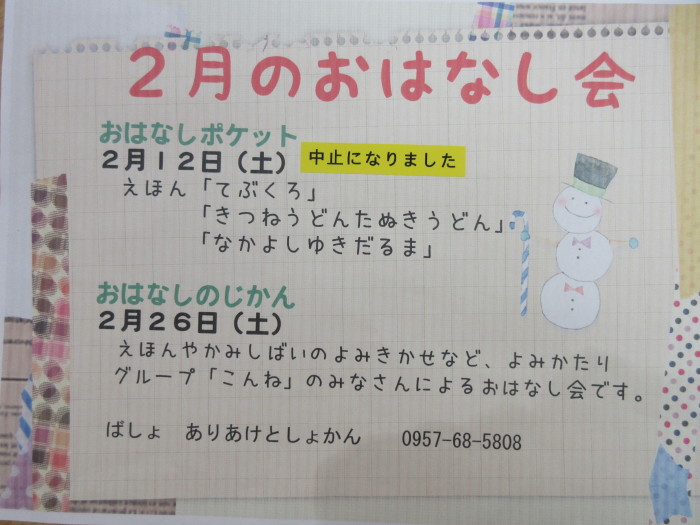 2月のおはなし会
おはなしポケット
2月12日(土) 中止になりました
えほん「てぶくろ」
「きつねうどんたぬきうどん」
「なかよしゆきだるま」
おはなしのじかん
2月26日(土)
えほんやかみしばいのよみきかせなど、よみかたり
グループ「こんね」のみなさんによるおはなし会です。
ばしょ ありあけとしょかん 0957-68-5808